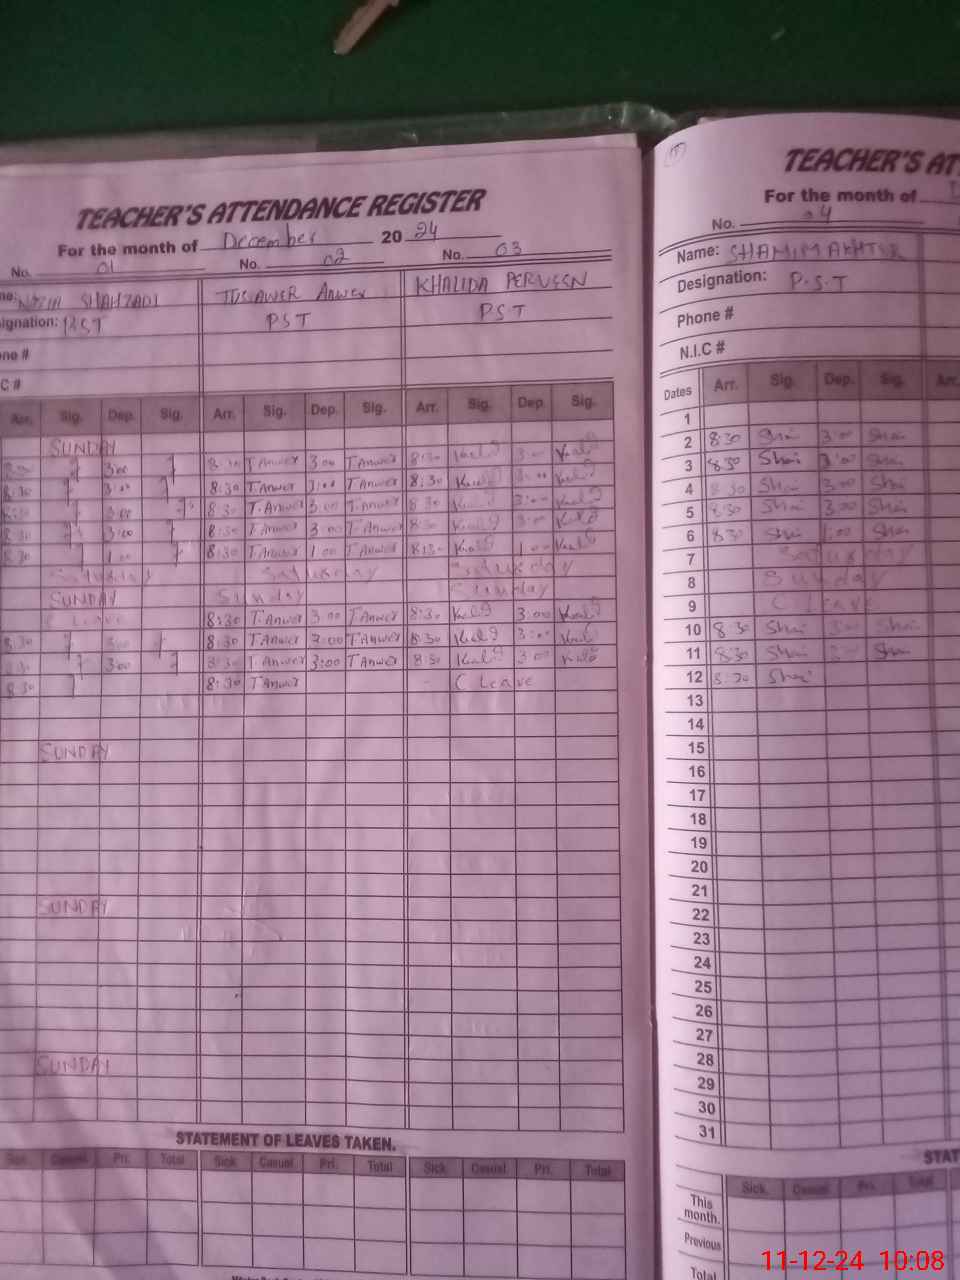 TEACHER'S ATTENDANCE REGISTER
For the month of December 2024
No. 01 No. 02 No. 03
NAZIA SHAHZADI ANWER KHALIDA PERVEEN
signation: PST PST
one #
C #
Arr. Sig. Dep. Sig. Arr. Sig. Dep. Sig. Arr. Sig. Dep. Sig.
SUNDAY
3:00 T.Anwer 3:00 T.Anwer 8:30 3:00
8:30 3:00 8:30 T.Anwer 3:00 T.Anwer 8:30 3:00
8:30 3:00 8:30 T.Anwer 3:00 T.Anwer 8:30 3:00
8:30 3:00 8:30 T.Anwer 3:00 T.Anwer 8:30 3:00
8:30 1:00 8:30 T.Anwer 1:00 T.Anwer 8:30 1:00
Saturday Saturday Saturday
SUNDAY Sunday Sunday
C Leave 8:30 T.Anwer 3:00 T.Anwer 8:30 3:00
8:30 3:00 8:30 T.Anwer 3:00 T.Anwer 8:30 3:00
8:30 3:00 8:30 T.Anwer 3:00 T.Anwer 8:30 3:00
8:30 8:30 T.Anwer C Leave
SUNDAY
SUNDAY
SUNDAY
STATEMENT OF LEAVES TAKEN.
Casual Pri. Total Sick Casual Pri. Total Sick Casual Pri. Total
TEACHER'S AT
For the month of
No. 04
Name: SHAMIM AKHTER
Designation: P.S.T
Phone #
N.I.C #
Dates Arr. Sig. Dep. Sig. Arr.
1
2 8:30 Sha 3:00 Sha
3 8:30 Sha 3:00 Sha
4 8:30 Sha 3:00 Sha
5 8:30 Sha 3:00 Sha
6 8:30 Sha 1:00 Sha
7 Saturday
8 Sunday
9 C Leave
10 8:30 Sha 3:00 Sha
11 8:30 Sha 3:00 Sha
12 8:30 Sha
13
14
15
16
17
18
19
20
21
22
23
24
25
26
27
28
29
30
31
STAT
Sick Casual Pri. Total
This
month.
Previous
Total
11-12-24 10:08